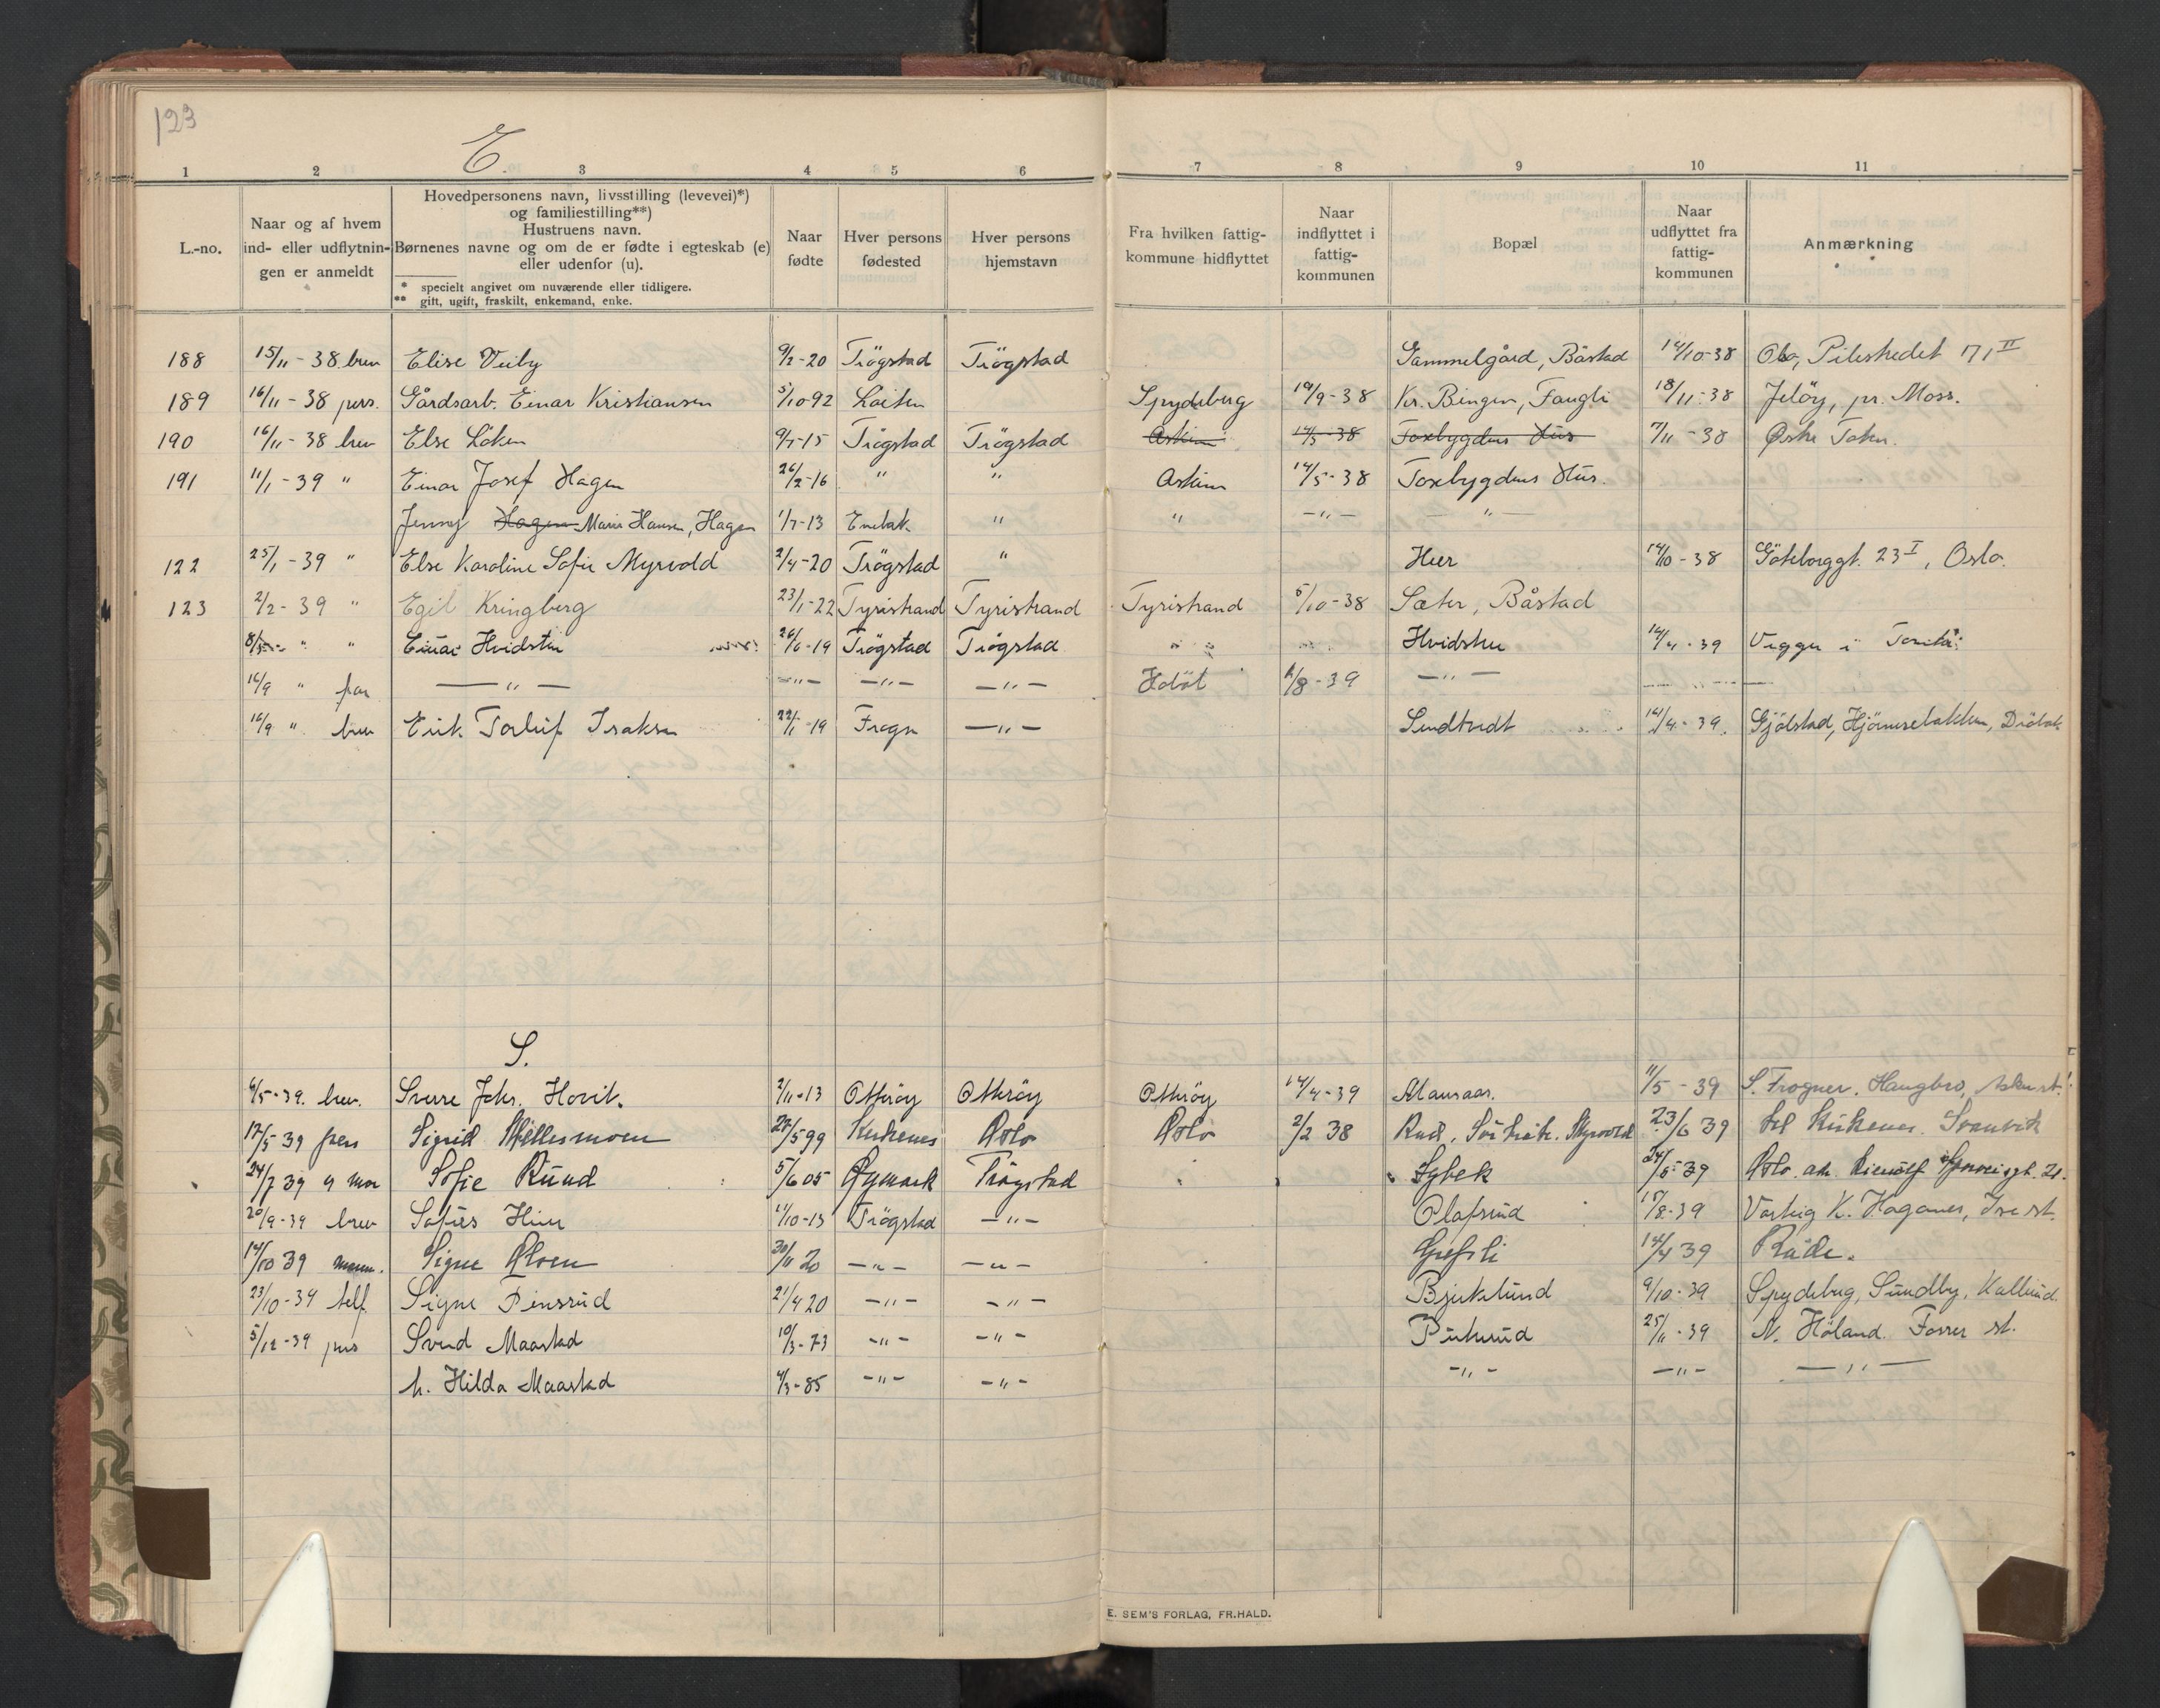 123
E.
1 2 3 4 5 6 7 8 9 10 11
L.-no.
Naar og af hvem ind- eller udflytnin- gen er anmeldt
Hovedpersonens navn, livsstilling (levevei)*) og familiestilling**) Hustruens navn. Børnenes navne og om de er fødte i egteskab (e) eller udenfor (u).
* specielt angivet om nuværende eller tidligere.
** gift, ugift, fraskilt, enkemand, enke.
Naar fødte
Hver persons fødested
Hver persons hjemstavn
Fra hvilken fattig- kommune hidflyttet
Naar indflyttet i fattig- kommunen
Bopæl
Naar udflyttet fra fattig- kommunen
Anmærkning
188 15/11-38 brev Elise Veiby 9/2-20 Trögstad Trögstad Gammelgård, Båstad 14/10-38 Oslo, Pilestredet 71 II
189 16/11-38 pers. Gårdsarb. Einar Kristiansen 5/10-92 Löiten Spydeberg 19/9-38 Kr. Bingen, Faugli 18/11-38 Jelöy, pr. Moss.
190 16/11-38 brev Else Löken 9/7-15 Trögstad Trögstad Askim 14/5-38 Foxbygdens Hus 7/11-38 Østre Toten.
191 11/1-39 " Einar Josef Hagen 26/2-16 " " Askim 14/5-38 Foxbygdens Hus.
Jenny Hagen Marie Hansen, Hagen 1/7-13 Enebak " " -"- "
122 25/1-39 " Else Karoline Sofie Myrvold 2/4-20 Trögstad " Heer 14/10-38 Göteborggt. 23 I, Oslo.
123 2/2-39 " Egil Kringberg 23/1-22 Tyristrand Tyristrand Tyristrand 5/10-38 Sæter, Båstad
" " Einar Hvidsten 26/6-19 Trögstad Trögstad Hvidsten 14/4-39 Vegger i
16/9 " -"- -"- -"- -"- Hobøl /8-39 -"-
16/9 " brev Erik Torleif Isaksen 22/1-19 Frogn -"- Sendtvedt 14/4-39. Gjölstad, Hjörnsebakken, Dröbak
S.
6/5-39. brev. Sverre Johs. Hovit. 2/11-13 Otteröy Otteröy Otteröy 14/4-39 11/5-39 S. Frogner. Haugbro,
12/5 39 pers Sigrid Mellesmoen 27/5 99 Kirkenes Oslo Oslo 2/2 38 Rud. 23/6 39 Kirkenes. Svanvik
24/7 39 Sofie Rund 5/6 05 Øymark Trögstad Sybek 24/5-39 Oslo. 21.
20/9-39 brev 11/10-13 Trögstad -"- Olafsrud 15/8-39 Varteig K. Haganes, Ise st.
14/10 39 Signe 30/11 20 -"- -"- Grefsli 14/4 39 Råde.
23/10-39 telf Signe Pinsrud 21/4 20 -"- -"- Bjerkelund 9/10-39 Spydeberg, Sundby,
5/12-39 pers Svend Maastad 10/3-73 -"- -"- 25/11-39 N. Höland. Fosser st.
h. Hilda Maastad 4/3-85 -"- -"- -"- -"- -"-
E. SEM'S FORLAG, FR.HALD.